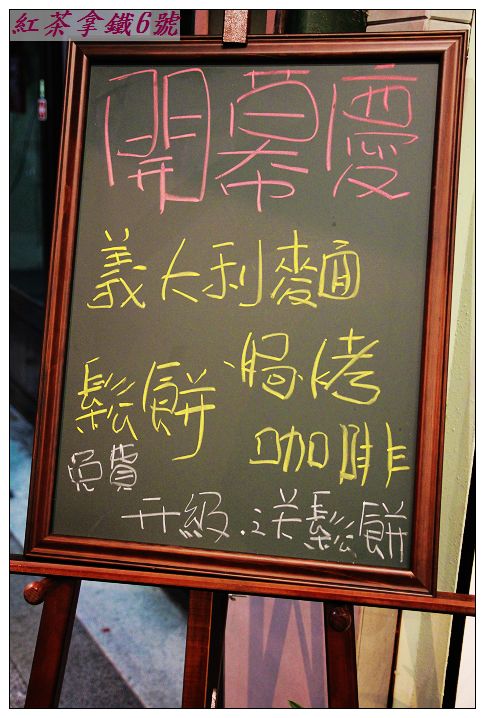 紅茶拿鐵6號
開幕慶
義大利麵
、焗烤
鬆餅
咖啡
免費
升級.送鬆餅